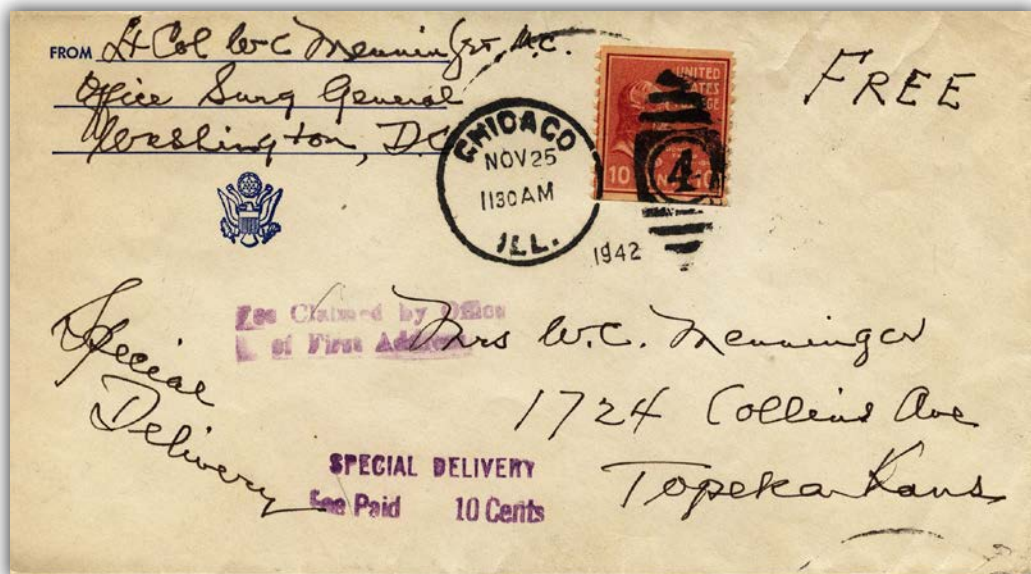 FROM Lt Col W C Menninger, M.C.
Office Surg General
Washington, D.C.
FREE
CHICAGO
NOV 25
1130 AM
ILL.
1942
UNITED
STATES
10
4
10
Special
Delivery
Fee Claimed by Office
of First Address
Mrs W.C. Menninger
1724 Collins Ave
Topeka Kans
SPECIAL DELIVERY
Fee Paid 10 Cents